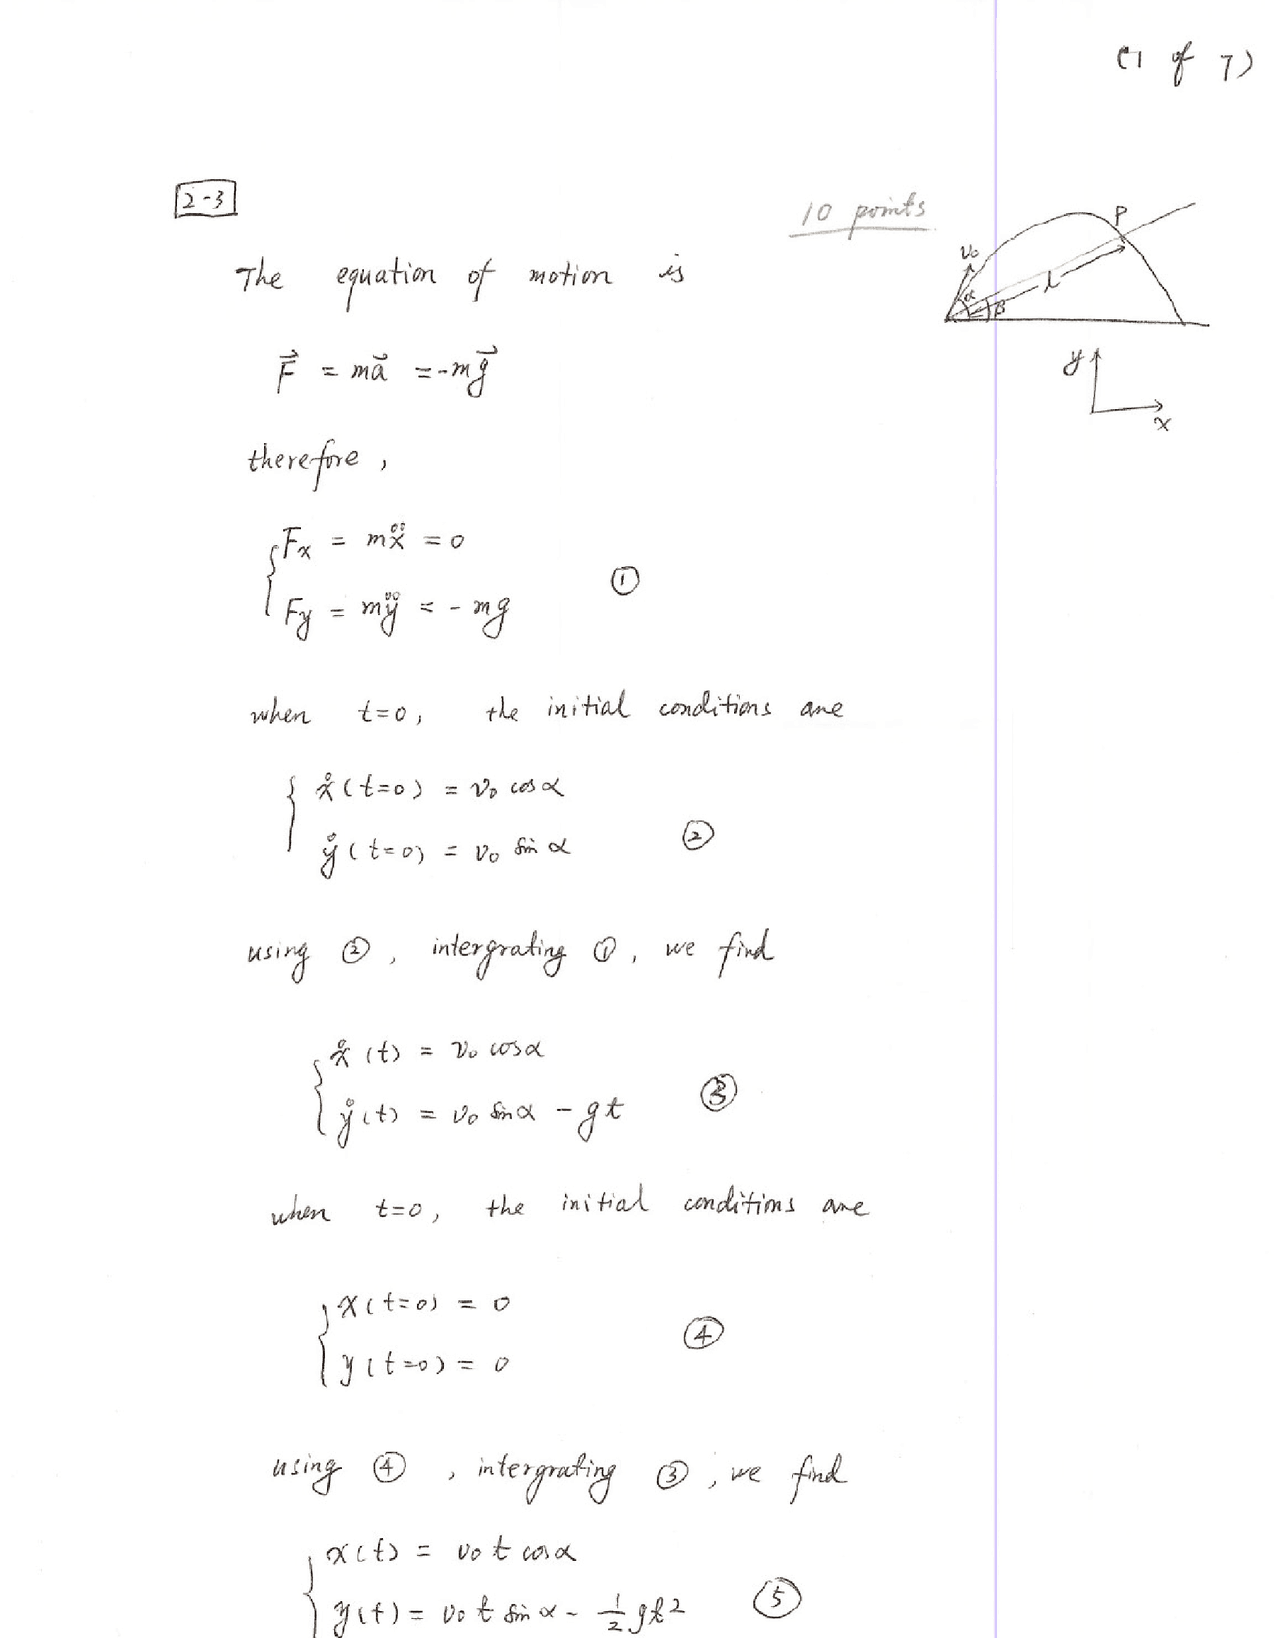 (1 of 7)
2-3
10 points
P
v₀
α
β
l
The equation of motion is
F⃗ = ma⃗ = -mg⃗
y
x
therefore,
Fx = mẍ = 0
①
Fy = mÿ = - mg
when t=0, the initial conditions are
ẋ(t=0) = v₀ cosα
②
ẏ(t=0) = v₀ sinα
using ②, intergrating ①, we find
ẋ(t) = v₀ cosα
③
ẏ(t) = v₀ sinα - gt
when t=0, the initial conditions are
x(t=0) = 0
④
y(t=0) = 0
using ④, intergrating ③, we find
x(t) = v₀ t cosα
y(t) = v₀ t sinα - 1/2 gt²
⑤